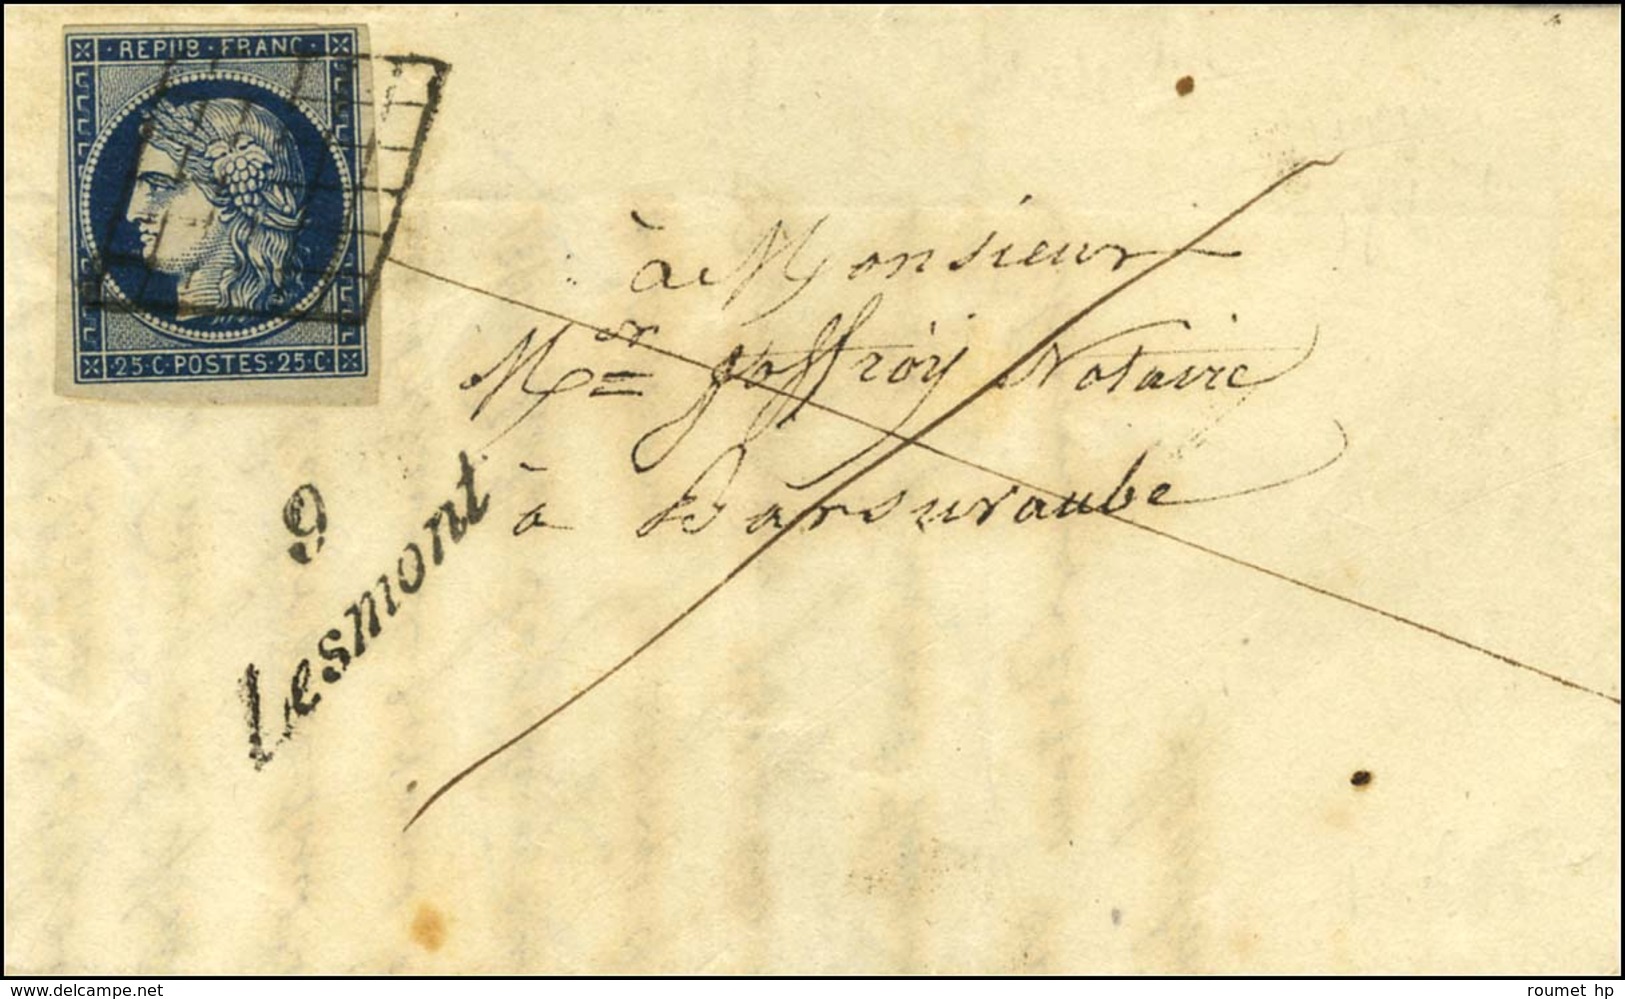 REPUB · FRANC ·
· 25 · C · POSTES · 25 · C ·
à Monsieur
Mor Joffroÿ Notaire
à Barsuraube
9
Lesmont
www.delcampe.net
roumet hp